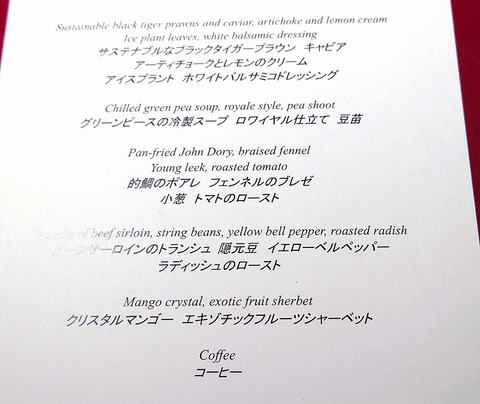 Sustainable black tiger prawns and caviar, artichoke and lemon cream
Ice plant leaves, white balsamic dressing
サステナブルなブラックタイガーブラウン キャビア
アーティチョークとレモンのクリーム
アイスプラント ホワイトバルサミコドレッシング
Chilled green pea soup, royale style, pea shoot
グリーンピースの冷製スープ ロワイヤル仕立て 豆苗
Pan-fried John Dory, braised fennel
Young leek, roasted tomato
的鯛のポアレ フェンネルのブレゼ
小葱 トマトのロースト
of beef sirloin, string beans, yellow bell pepper, roasted radish
ビーフサーロインのトランシュ 隠元豆 イエローベルペッパー
ラディッシュのロースト
Mango crystal, exotic fruit sherbet
クリスタルマンゴー エキゾチックフルーツシャーベット
Coffee
コーヒー